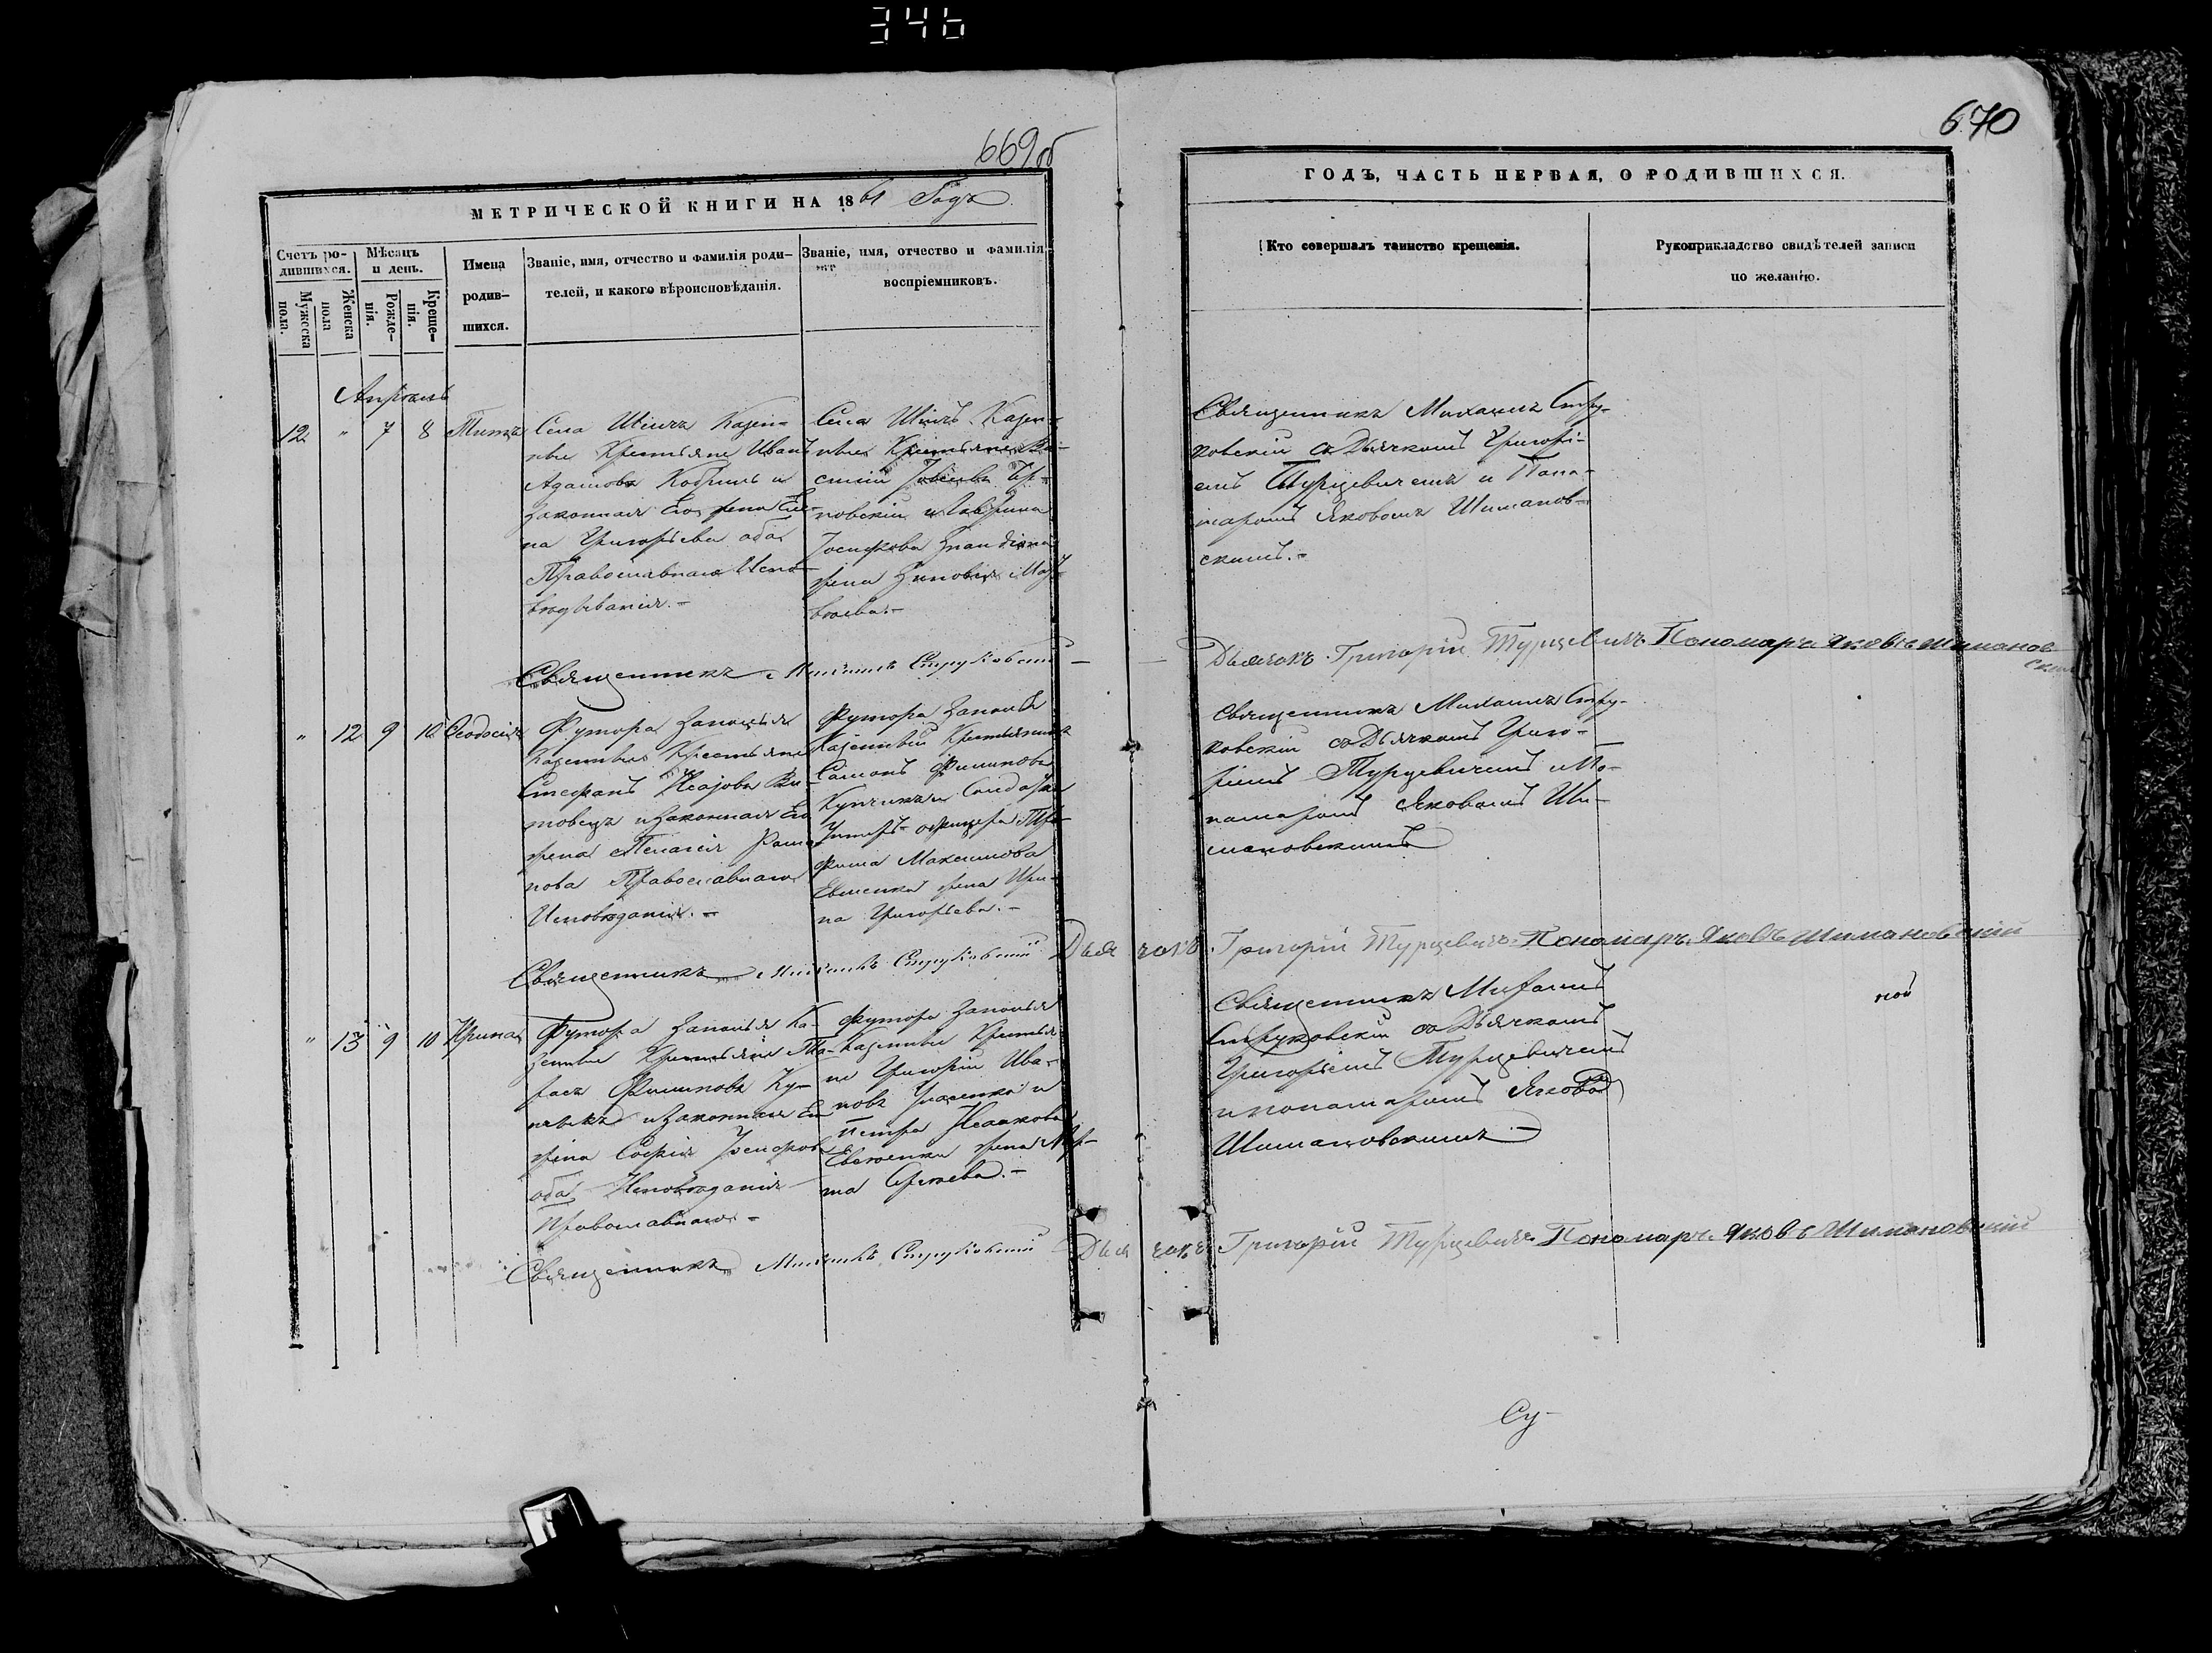 346
669 об
670
МЕТРИЧЕСКОЙ КНИГИ НА 1861 Годъ
ГОДЪ, ЧАСТЬ ПЕРВАЯ, О РОДИВШИХСЯ.
Счетъ ро-
дившихся.
Мужеска
пола.
Женска
пола
Мѣсяцъ
и день.
Рожде-
нія.
Креще-
нія.
Имена
родив-
шихся.
Званіе, имя, отчество и фамилія роди-
телей, и какого вѣроисповѣданія.
Званіе, имя, отчество и фамилія
воспріемниковъ.
Кто совершалъ таинство крещенія.
Рукоприкладство свидѣтелей записи
по желанію.
Апрѣль
12 " 7 8 Титъ
Села Казен-
ные Крестьяне Иванъ
Адамовъ и
Законная Его жена Еле-
на Григорьева оба
Православнаго Испо-
вѣдыванія.-
Села Казен-
ные Крестьяне
и
Іосифова
жена Зиновія
Священникъ Михаилъ Стру-
ковскій съ Дьячкомъ Григорі-
емъ Турцевичемъ и Поно-
маремъ Яковомъ Шиманов-
скимъ.-
Священникъ Михаилъ Струковскій
Дьячокъ Григорій Турцевичъ Пономарь Яковъ Шиманов
скій
" 12 9 10 Ѳеодосія
Футора Запонья
Казенные Крестьяне
Стефанъ Исаковъ Ви-
товецъ и Законная Его
жена Пелагія Рома-
нова Православнаго
Исповѣданія.-
Футора
Казенный Крестьянинъ
Филиповъ
Купчикъ и
Унтеръ-офицера Тро-
фима Максимова
Евсменка жена Ири-
на Григорьева.-
Священникъ Михаилъ Стру-
ковскій съ Дьячкомъ Григо-
ріемъ Турцевичемъ и По-
номаремъ Яковомъ Ши-
мановскимъ
Священникъ Михаилъ Струковскій
Дьячокъ Григорій Турцевичъ Пономарь Яковъ Шимановскій
" 13 9 10 Ирина
Футора Запонья Ка-
зенные Крестьяне Та-
расъ Филиповъ Ку-
пчикъ и Законная Его
жена Софія Іосифова
оба Исповѣданія
Православнаго-
Футора Запонья
Казенные Крестья-
не Григорій Ива-
новъ и
Петра Исаакова
жена Мар-
та Сергѣева.-
Священникъ Михаилъ
Струковскій съ Дьячкомъ
Григоріемъ Турцевичемъ
и пономаремъ Яковомъ
Шимановскимъ
Священникъ Михаилъ Струковскій
Дьячокъ Григорій Турцевичъ Пономарь Яковъ Шимановскій
Су-